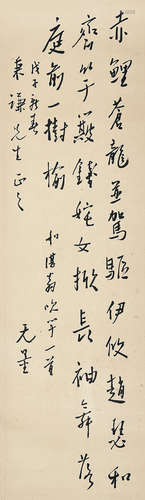 赤鯉蒼龍並駕驅伊攸趙瑟和
齊竽數錢姹女掀長袖舞落
庭前一樹榆 和湛翁吹竽一首
戊子新春
秉謙先生正之 无量